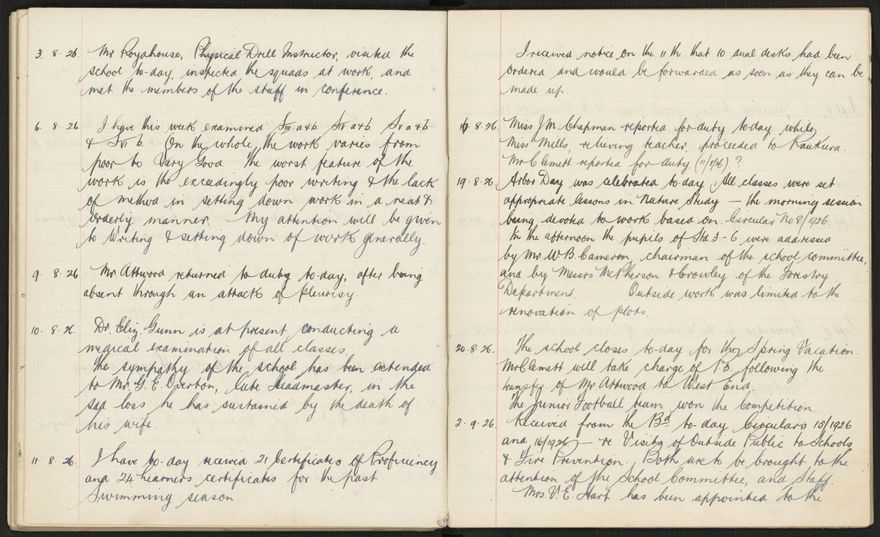 3. 8. 26 Mr Roydhouse, Physical Drill Instructor, visited the
school to-day, inspected the squads at work, and
met the members of the staff in conference.
6. 8. 26 I have this week examined
On the whole, the work varies from
poor to Very Good the worst feature of the
work is the exceedingly poor writing & the lack
of method in setting down work in a neat &
orderly manner. My attention will be given
to Writing & setting down of work generally.
9. 8. 26 Mr Attwood returned to duty to-day, after being
absent through an attack of pleurisy.
10. 8. 26. Dr. Eliz. Gunn is at present conducting a
medical examination of all classes.
The sympathy of the school has been extended
to Mr G. E. Overton, late Headmaster, in the
sad loss he has sustained by the death of
his wife.
11. 8. 26. I have to-day received 21 Certificates of Proficiency
and 24 Learners certificates for the past
Swimming season.
I received notice on the 11th that 10 dual desks had been
ordered and would be forwarded as soon as they can be
made up.
16. 8. 26. Miss J M. Chapman reported for duty to-day while
Miss Mills, relieving teacher, proceeded to
Mr Clemett reported for duty ?
19. 8. 26 Arbor Day was celebrated to-day. All classes were set
appropriate lessons in Nature Study — the morning session
being devoted to work based on Circular No 8/1926.
In the afternoon the pupils of Std. 3 - 6 were addressed
by Mr. W B. Cameron, chairman of the school committee,
and by Messrs McPherson & Crowley of the Forestry
Department. Outside work was limited to the
renovation of plots.
20. 8. 26. The school closes to-day for the Spring Vacation.
Mr Clemett will take charge of following the
transfer of Mr Attwood to West End.
The Junior Football team won the Competition.
2. 9. 26. Received from the Bd to-day Circulars 15/1926
and 16/1926 — re Visits of Outside Public to Schools
& Fire Prevention. Both are to be brought to the
attention of the School Committee, and Staff.
Mrs. V. E Hart has been appointed to the